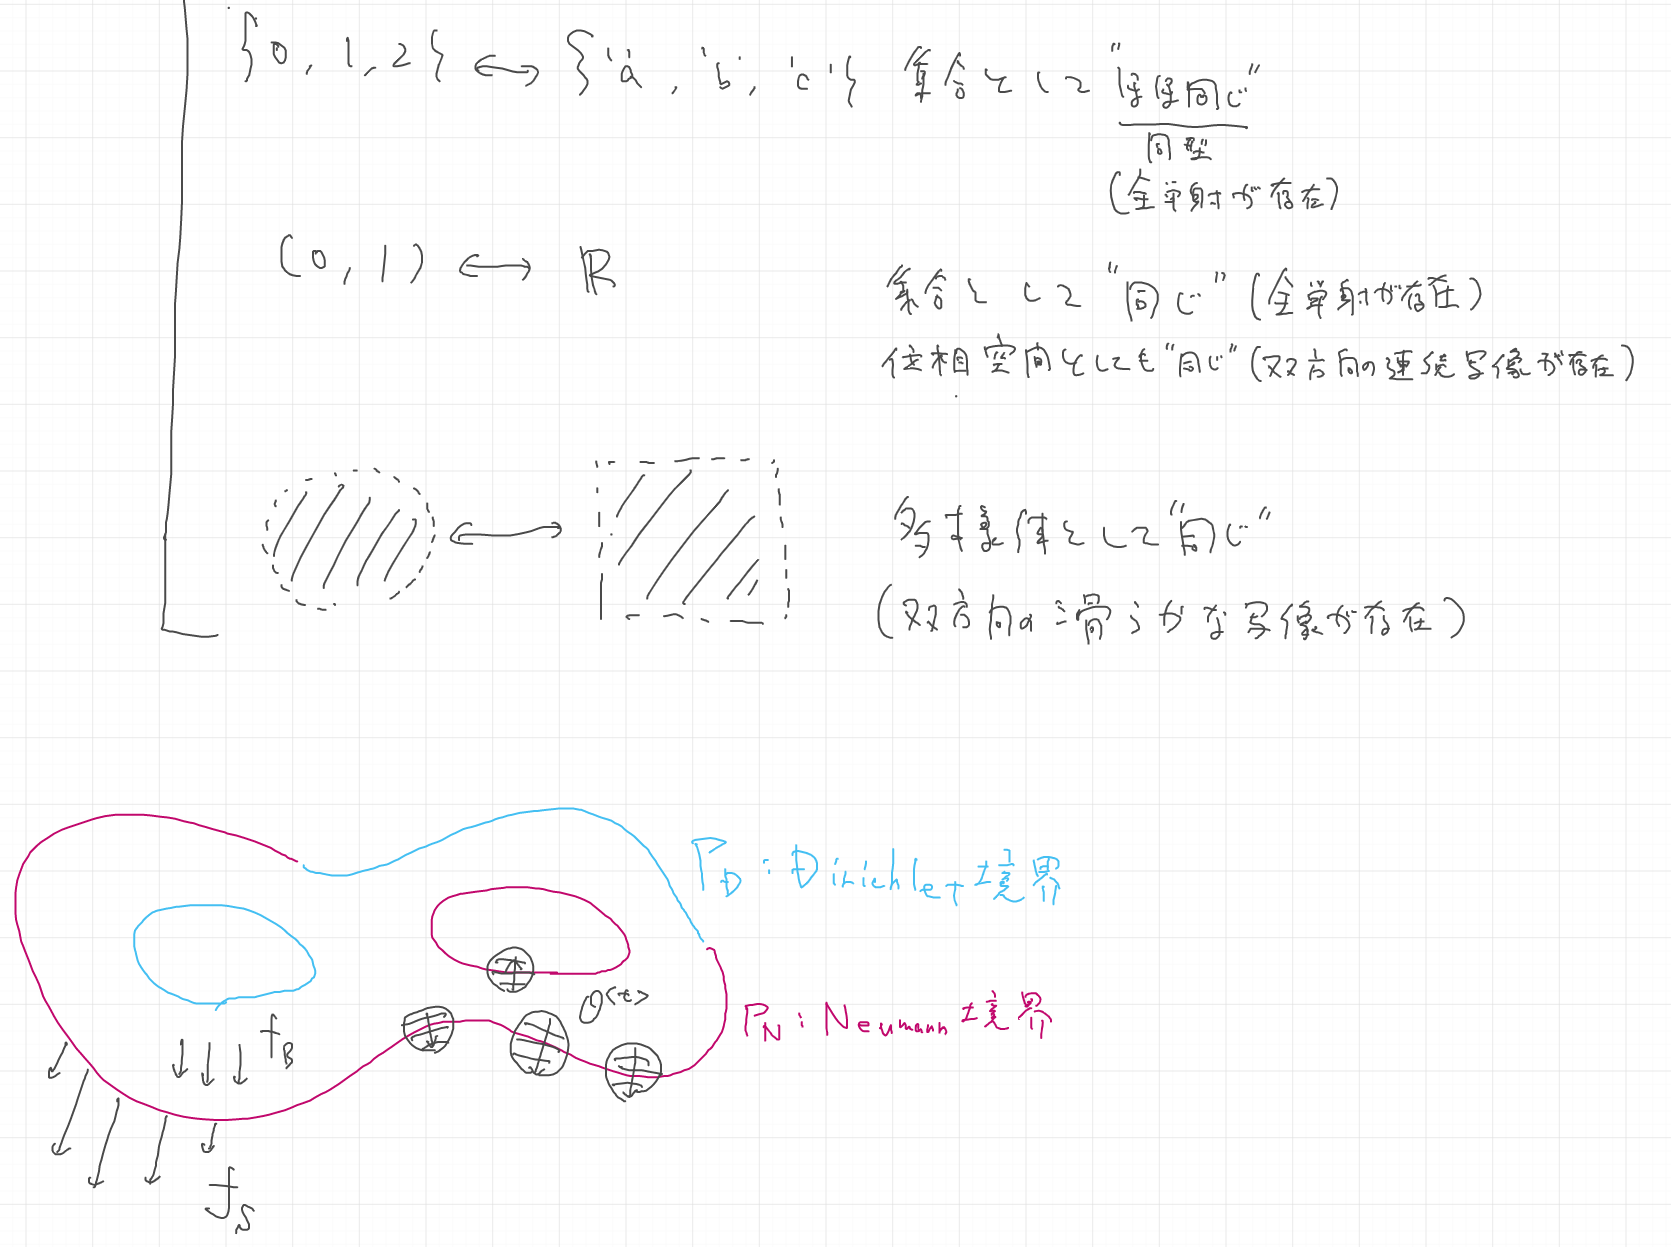 {0, 1, 2} ↔ {'a', 'b', 'c'} 集合として "ほぼ同じ"
同型
(全単射が存在)
(0, 1) ↔ ℝ 集合として "同じ" (全単射が存在)
位相空間としても "同じ" (双方向の連続写像が存在)
多様体として "同じ"
(双方向の滑らかな写像が存在)
Γ_D : Dirichlet 境界
Γ_N : Neumann 境界
f_B
f_S